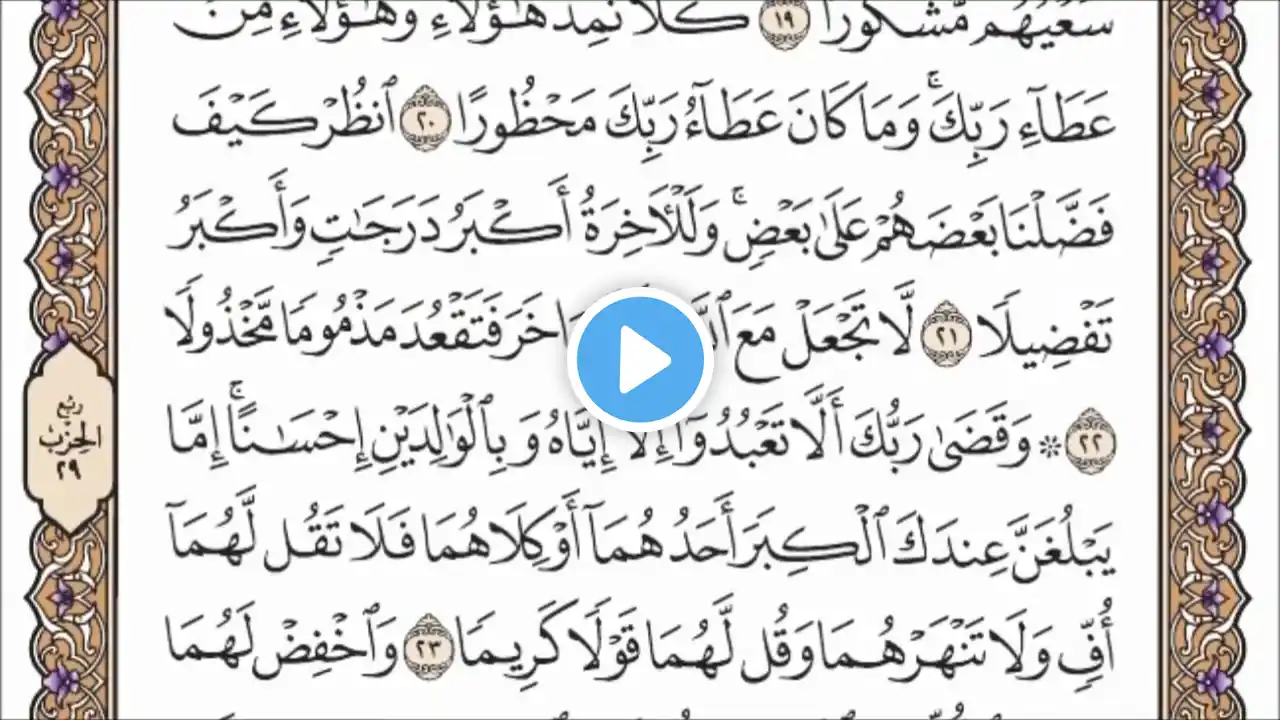 سَعْيُهُم مَّشْكُورًا ١٩ كُلًّا نُّمِدُّ هَٰٓؤُلَآءِ وَهَٰٓؤُلَآءِ مِنْ
عَطَآءِ رَبِّكَ ۚ وَمَا كَانَ عَطَآءُ رَبِّكَ مَحْظُورًا ٢٠ ٱنظُرْ كَيْفَ
فَضَّلْنَا بَعْضَهُمْ عَلَىٰ بَعْضٍ ۚ وَلَلْءَاخِرَةُ أَكْبَرُ دَرَجَٰتٍ وَأَكْبَرُ
تَفْضِيلًا ٢١ لَّا تَجْعَلْ مَعَ ٱ اخَرَ فَتَقْعُدَ مَذْمُومًا مَّخْذُولًا
٢٢ ۞ وَقَضَىٰ رَبُّكَ أَلَّا تَعْبُدُوٓا۟ إِلَّآ إِيَّاهُ وَبِٱلْوَٰلِدَيْنِ إِحْسَٰنًا ۚ إِمَّا
يَبْلُغَنَّ عِندَكَ ٱلْكِبَرَ أَحَدُهُمَآ أَوْ كِلَاهُمَا فَلَا تَقُل لَّهُمَآ
أُفٍّ وَلَا تَنْهَرْهُمَا وَقُل لَّهُمَا قَوْلًا كَرِيمًا ٢٣ وَٱخْفِضْ لَهُمَا
رُبْع
الحِزْب
٢٩